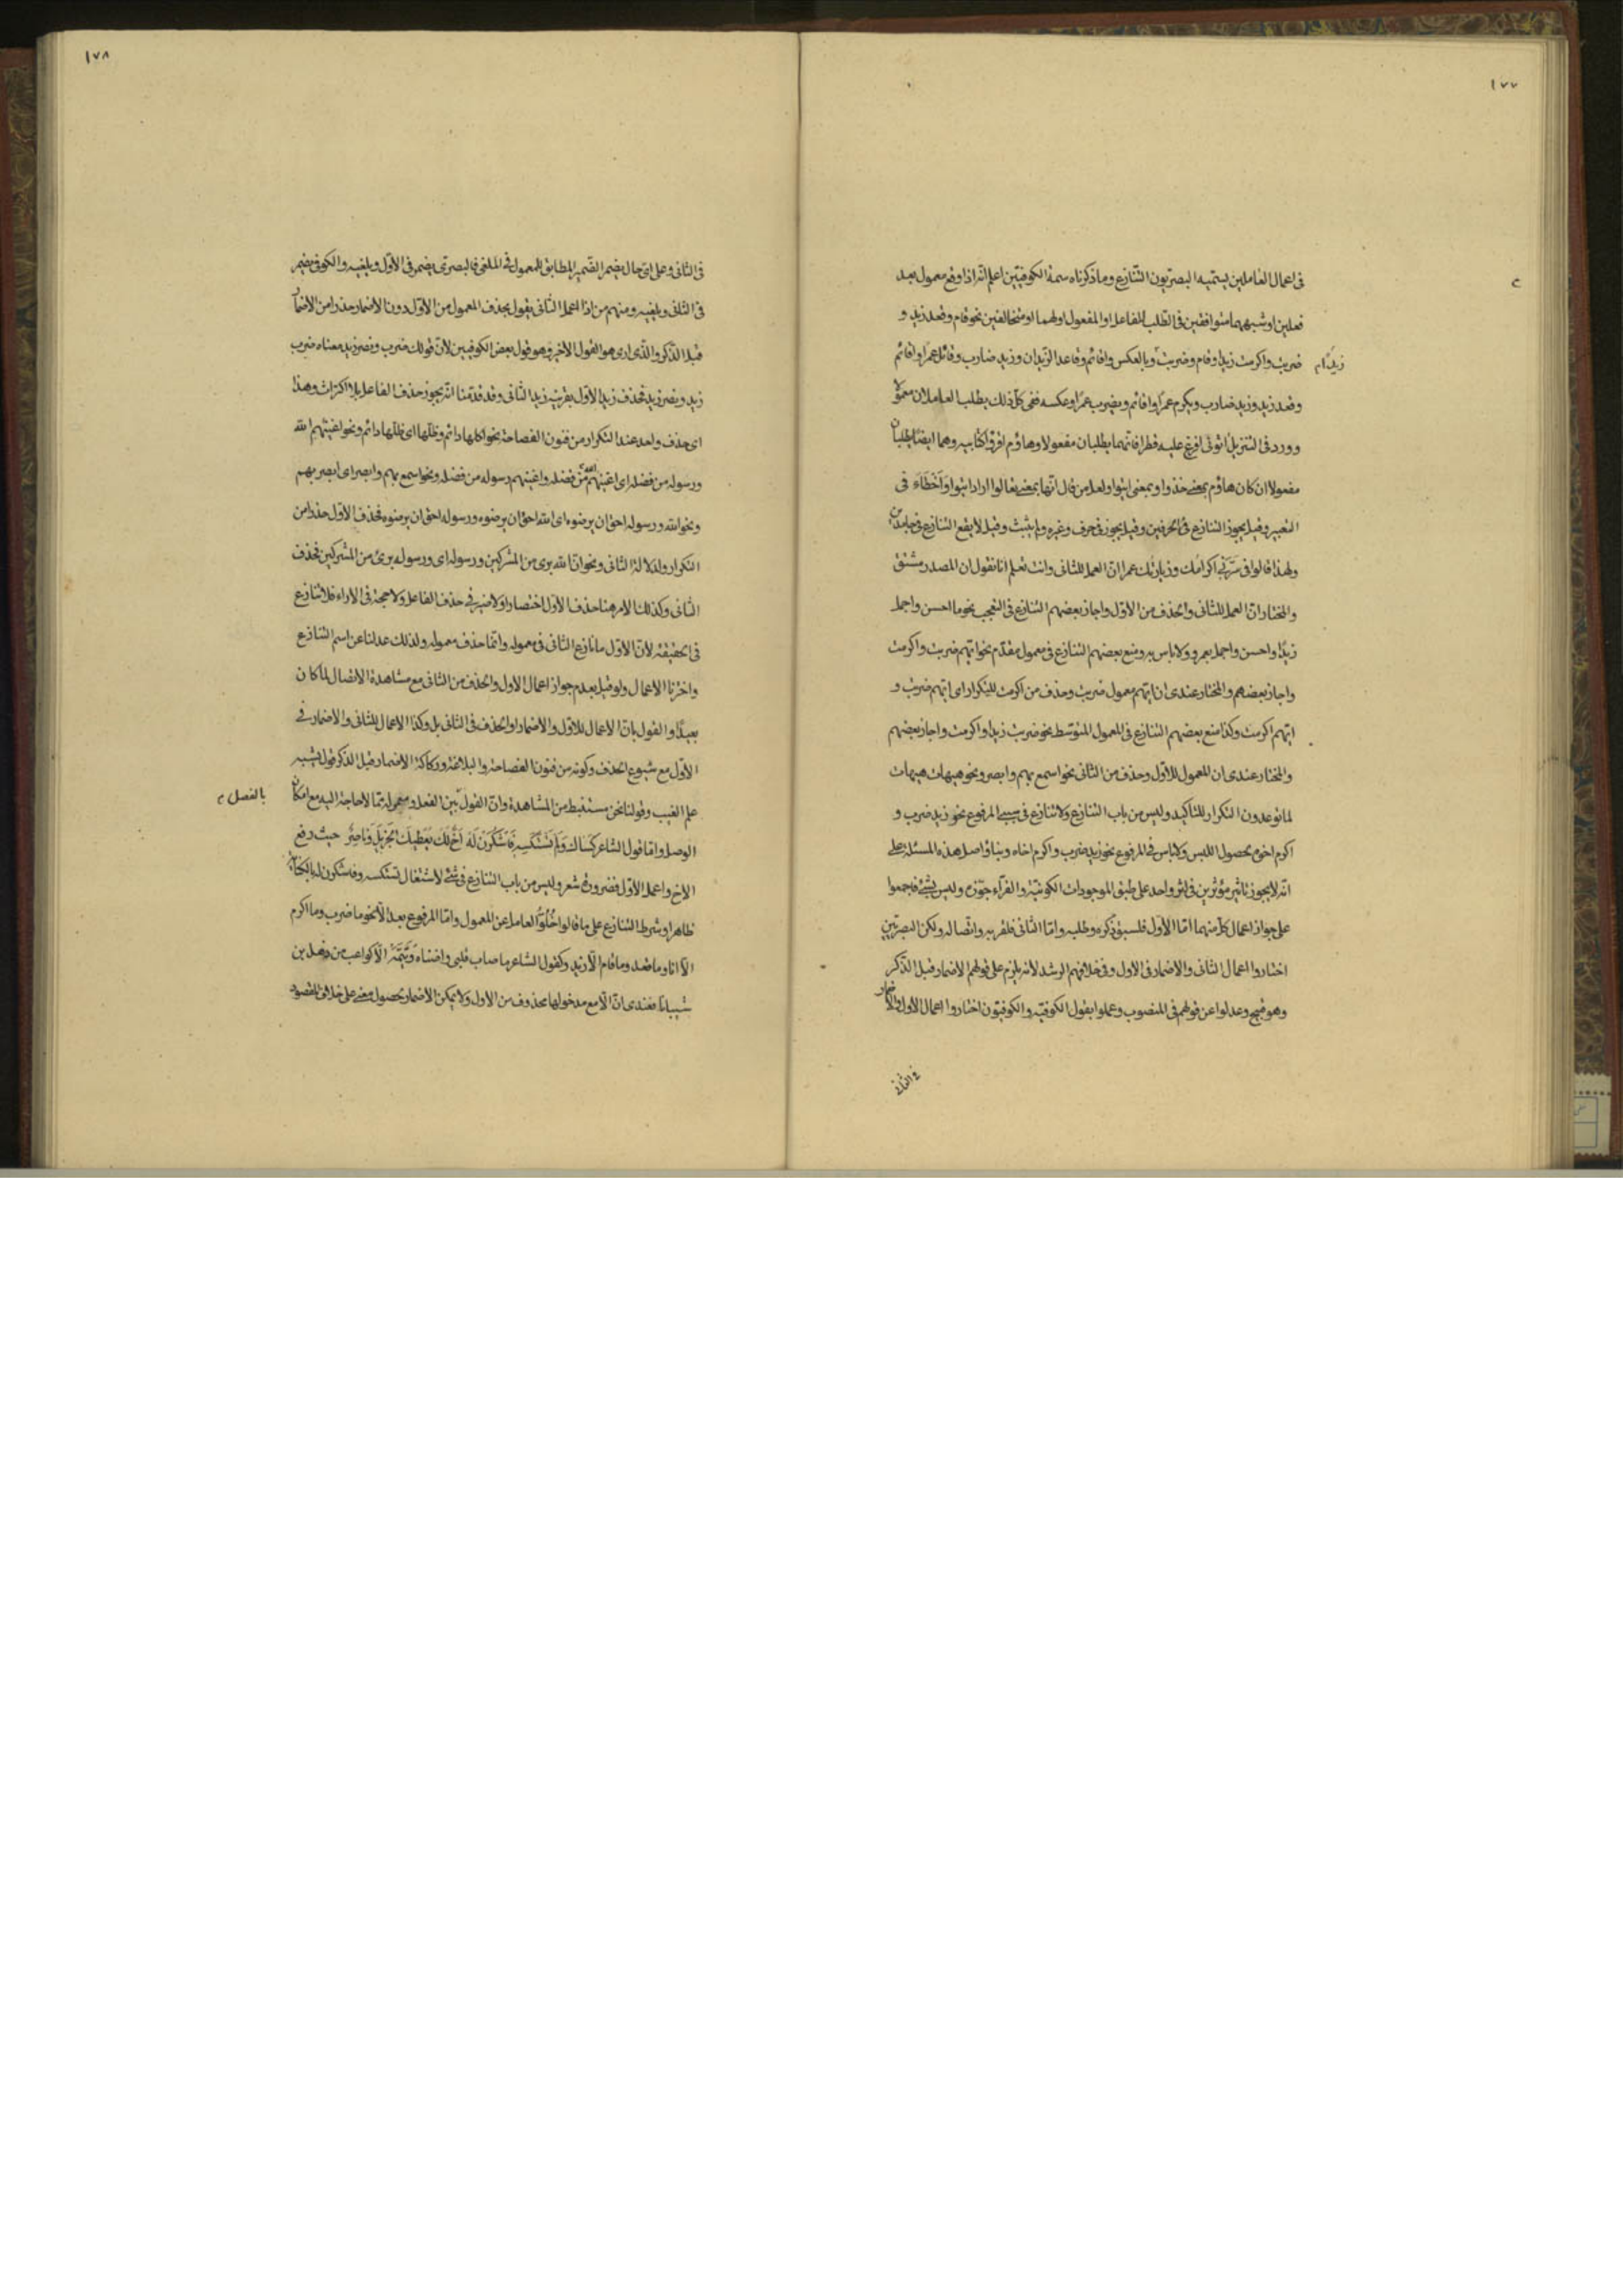 ١٧٧
فى اعمال العاملين يسميه البصريون التنازع وما ذكرناه سمة الكوفيين اعلم انه اذا وقع معمول بعد
فعلين او شبههما متوافقين فى الطلب للفاعل او المفعول او لهما او متخالفين نحو قام وقعد زيد و
ضربت واكرمت زيدا وقام وضربت وبالعكس واقائم وقاعد الزيدان وزيد ضارب وقاتل عمرا واقائم
زيدًا م
وقعد زيد وزيد ضارب ويكرم عمرا واقائم ويضرب عمرا وعكسه ففى كل ذلك يطلب العاملان معمولا
وورد فى التنزيل اتونى افرغ عليه قطرا فانهما يطلبان مفعولا وهاؤم اقرؤا كتابيه وهما ايضا يطلبان
مفعولا ان كان هاؤم بمعنى خذوا او بمعنى ايتوا ولعل من قال انها بمعنى تعالوا اراد ايتوا واخطاء فى
التعبير وقيل يجوز التنازع فى الحرفين وقيل يجوز فى حرف وغيره ولم يثبت وقيل لا يقع التنازع فى جامدين
ولهذا قالوا فى سرنى اكرامك وزيارتك عمرا ان العمل للثانى وانت تعلم انا نقول ان المصدر مشتق
والمختار ان العمل للثانى والحذف من الاول واجاز بعضهم التنازع فى التعجب نحو ما احسن واجمل
زيدا واحسن واجمل بعمرو ولا باس به ومنع بعضهم التنازع فى معمول مقدم نحو ايهم ضربت واكرمت
واجاز بعضهم والمختار عندى ان ايهم معمول ضربت وحذف من اكرمت للتكرار اى ايهم ضربت و
ايهم اكرمت وكذا منع بعضهم التنازع فى المعمول المتوسط نحو ضربت زيدا واكرمت واجاز بعضهم
والمختار عندى ان المعمول للاول وحذف من الثانى نحو اسمع بهم وابصر ونحو هيهات هيهات
لما توعدون التكرار للتاكيد وليس من باب التنازع ولا تنازع فى سببى المرفوع نحو زيد ضرب و
اكرم اخوه لحصول اللبس ولا باس فى المرفوع نحو زيد ضرب واكرم اخاه وبناؤ اصل هذه المسئلة على
انه لا يجوز تاثير مؤثرين فى اثر واحد على طبق الموجودات الكونية والفراء جوزه وليس بشئ فاجمعوا
على جواز اعمال كل منهما اما الاول فلسبق ذكره وطلبه واما الثانى فلقربه واتصاله ولكن البصريين
اختاروا اعمال الثانى والاضمار فى الاول وفى خلافهم الرشد لانه يلزم على قولهم الاضمار قبل الذكر
وهو قبيح وعدلوا عن قولهم فى المنصوب وعملوا بقول الكوفيه والكوفيون اختاروا اعمال الاول والاضمار
فى الثانى
١٧٨
فى الثانى وعلى اى حال يضمر الضمير المطابق للمعمول فى الملغى فالبصرى يضمر فى الاول ويلغيه والكوفى يضمر
فى الثانى ويلغيه ومنهم من اذا اعمل الثانى يقول بحذف المعمول من الاول دون الاضمار حذرا من الاضمار
قبل الذكر والذى ارى هو القول الاخير وهو قول بعض الكوفيين لان قولك ضرب ونصر زيد معناه ضرب
زيد ونصر زيد فحذف زيد الاول بقرينة زيد الثانى وقد قدمنا انه يجوز حذف الفاعل بلا اكتراث وهذا
اى حذف واحد عند التكرار من فنون الفصاحة نحو اكلها دائم وظلها اى ظلها دائم ونحو اغنيهم الله
ورسوله من فضله اى اغنيهم الله من فضله واغنيهم رسوله من فضله ونحو اسمع بهم وابصر اى ابصر بهم
ونحو الله ورسوله احق ان يرضوه اى الله احق ان يرضوه ورسوله احق ان يرضوه فحذف الاول حذرا من
التكرار ولدلالة الثانى ونحو ان الله برى من المشركين ورسوله اى ورسوله برئ من المشركين فحذف
الثانى وكذلك الامر هنا حذف الاول اختصارا ولا ضير فى حذف الفاعل ولا حجة فى الاراء فلا تنازع
فى الحقيقة لان الاول ما نازع الثانى فى معموله وانما حذف معموله ولذلك عدلنا عن اسم التنازع
واخترنا الاعمال ولو قيل بعدم جواز اعمال الاول والحذف من الثانى مع مشاهدة الانفصال لما كان
بعيدا والقول بان الاعمال للاول والاضمار او الحذف فى الثانى بل وكذا الاعمال للثانى والاضمار فى
الاول مع شيوع الحذف وكونه من فنون الفصاحة والبلاغة وركاكة الاضمار قبل الذكر قول يشبه
علم الغيب وقولنا نحن مستنبط من المشاهدة وان القول بين الفعل ومعموله مما لا حاجة اليه مع امكان
بالفصل م
الوصل واما قول الشاعر كساك ولم تستكسه فاشكرن له اخ لك يعطيك الجزيل وناصر حيث رفع
الاخ واعمل الاول فضرورة شعر وليس من باب التنازع فى شئ لاشتغال تستكسه وفاشكرن له
ظاهرا وشرط التنازع على ما قالوا خلو العامل عن المعمول واما المرفوع بعد الا نحو ما ضرب وما اكرم
الا انا وما قعد وما قام الا زيد وكقول الشاعر ما صاب قلبى واضناه وتيمه الا كواعب من ذهل بن
شيبانا فعندى ان الا مع مدخولها محذوف من الاول ولا يمكن الاضمار لحصول معنى على خلاف المقصود